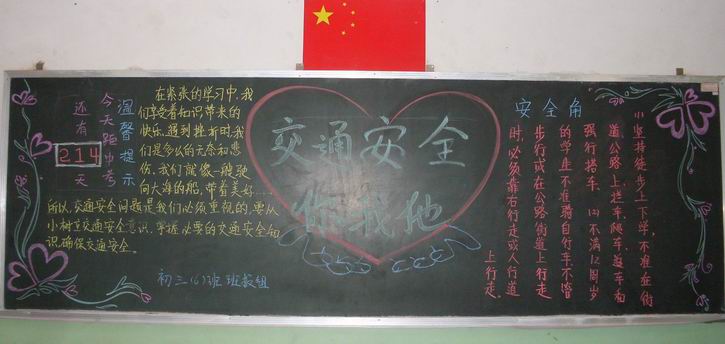 温馨提示
今天距中考
还有
214
天
在紧张的学习中,我
们享受着知识带来的
快乐,遇到挫折时,我
们是多么的无奈和悲
伤,我们就像一艘驶
向大海的船,带着美好……
所以,交通安全问题是我们必须重视的,要从
小树立交通安全意识,掌握必要的交通安全知
识,确保交通安全。
初三(6)班班教组
交通安全
你我他
安全角
⑴坚持徒步上下学,不准在街
道、公路上拦车、爬车、追车和
强行搭车。⑵不满12周岁
的学生不准骑自行车,不管
步行或在公路街道上行走
时,必须靠右行走或人行道
上行走。